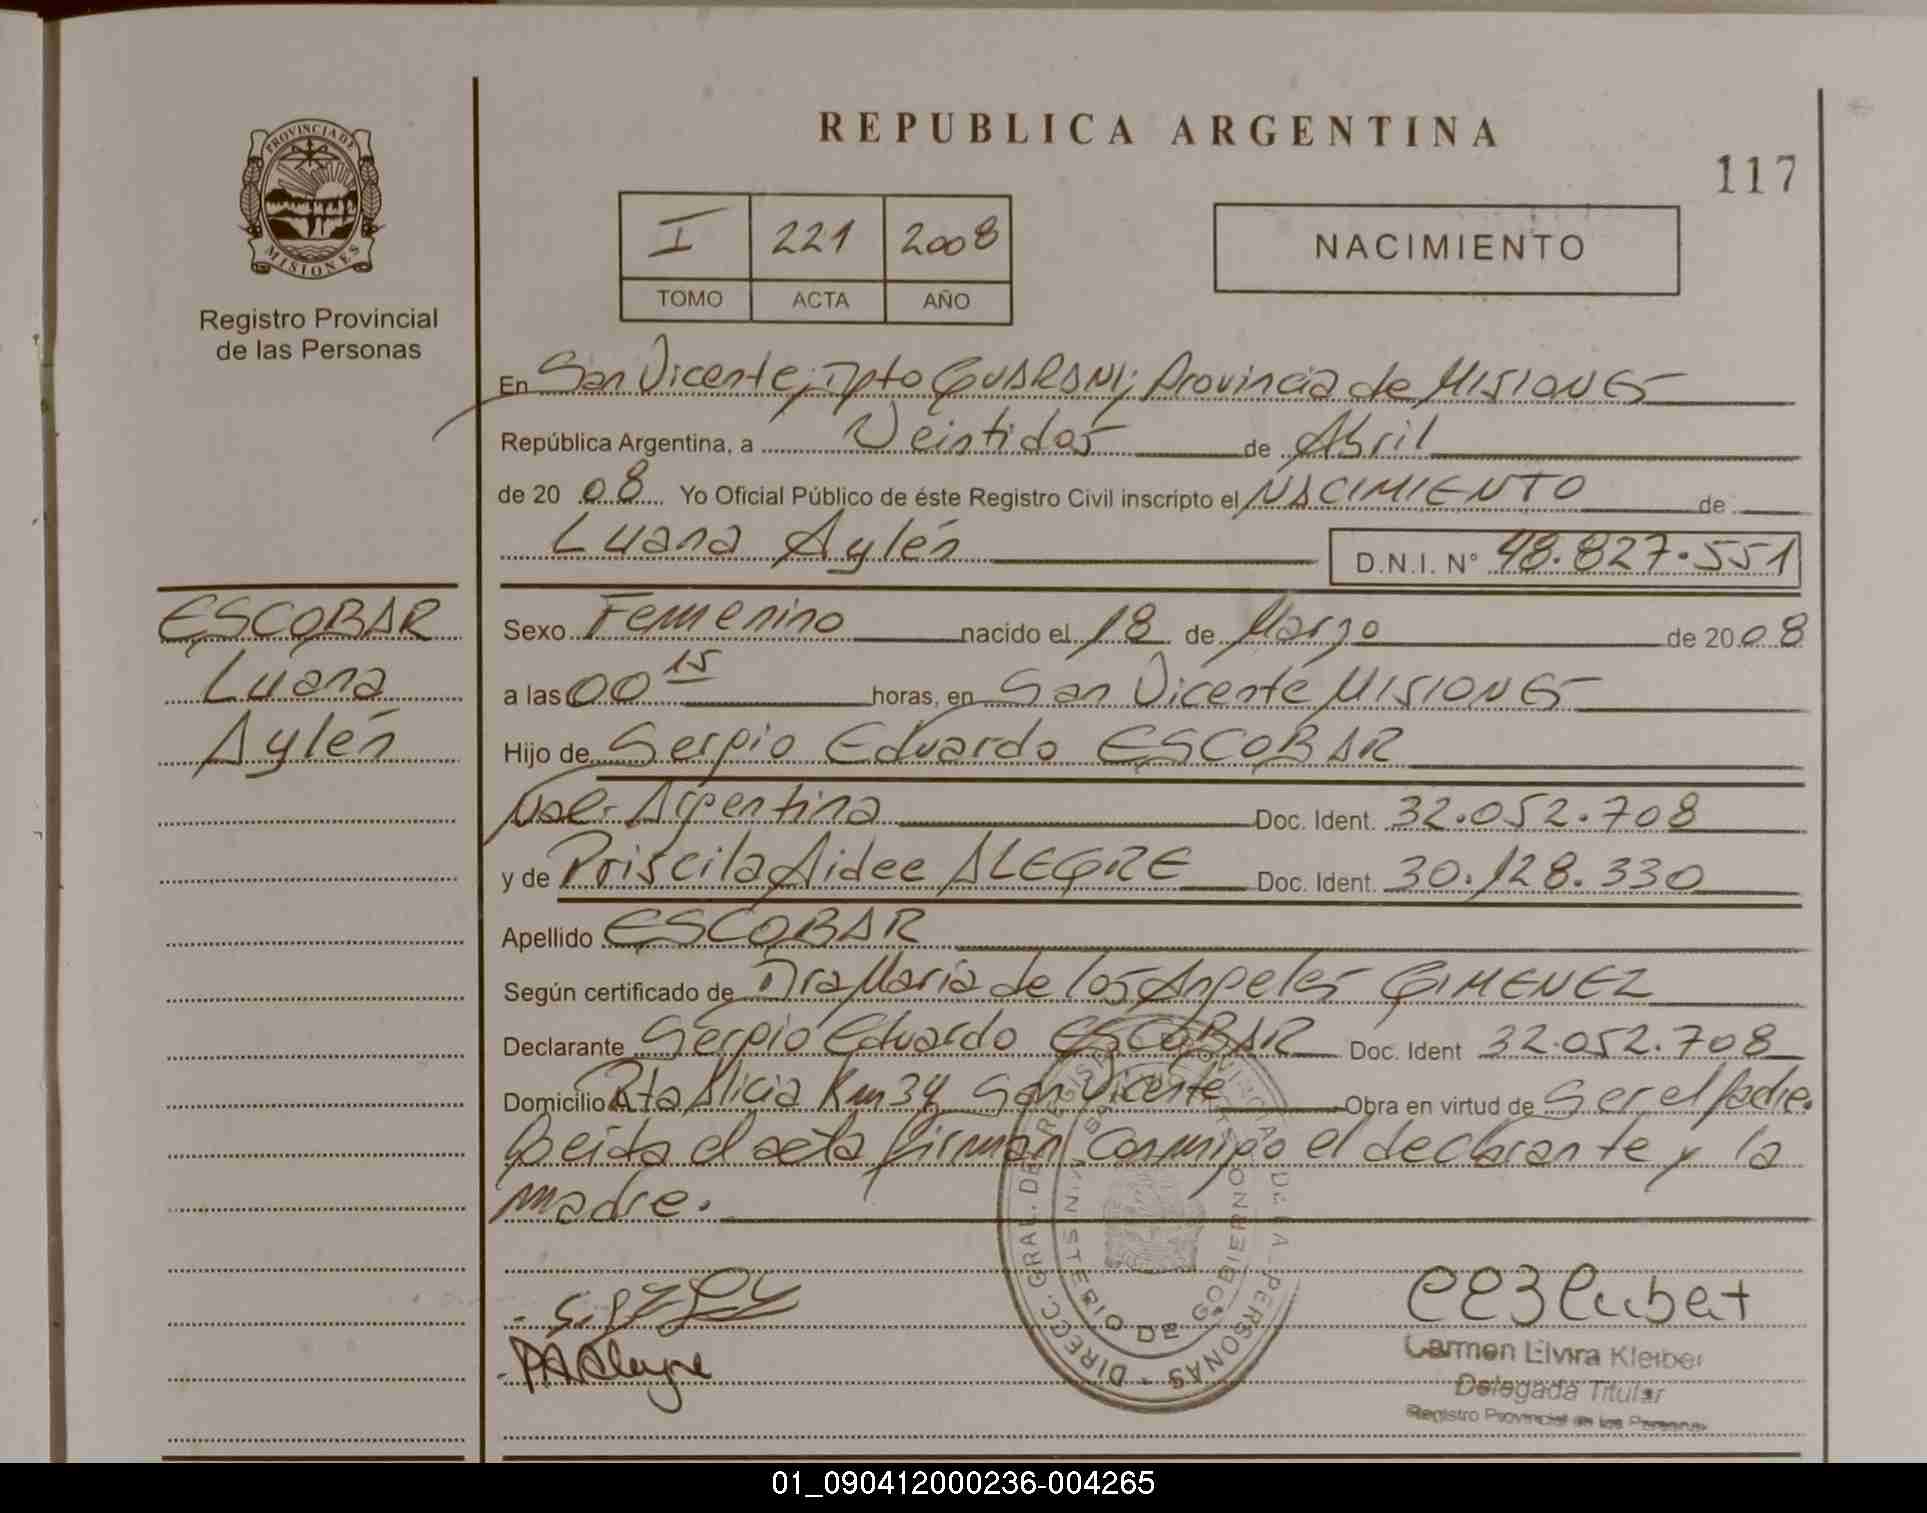 REPUBLICA ARGENTINA
117
PROVINCIA DE
MISIONES
Registro Provincial
de las Personas
I 221 2008
TOMO ACTA AÑO
NACIMIENTO
En San Vicente; Dpto GUARANI; Provincia de MISIONES
República Argentina, a Veintidos de Abril
de 20 08 Yo Oficial Público de éste Registro Civil inscripto el NACIMIENTO de
Luana Aylén D.N.I. N° 48.827.551
ESCOBAR
Luana
Aylén
Sexo Femenino nacido el 18 de Marzo de 20 08
a las 00 15 horas, en San Vicente MISIONES
Hijo de Sergio Eduardo ESCOBAR
Nac. Argentina Doc. Ident. 32.052.708
y de Priscila Aidee ALEGRE Doc. Ident. 30.128.330
Apellido ESCOBAR
Según certificado de Dra Maria de los Angeles GIMENEZ
Declarante Sergio Eduardo ESCOBAR Doc. Ident 32.052.708
Domicilio Pta Alicia Km 34 San Vicente Obra en virtud de Ser el Padre.
Leida el acta firman conmigo el declarante y la
madre.
DIRECC. GRAL. DEL REGISTRO PROVINCIAL DE LAS PERSONAS
MINISTERIO DE GOBIERNO
PAAlegre
Carmen Elvira Kleiber
Delegada Titular
Registro Provincial de las Personas
01_090412000236-004265